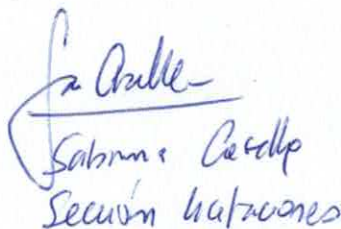 Sabrina Casella
Sección Licitaciones